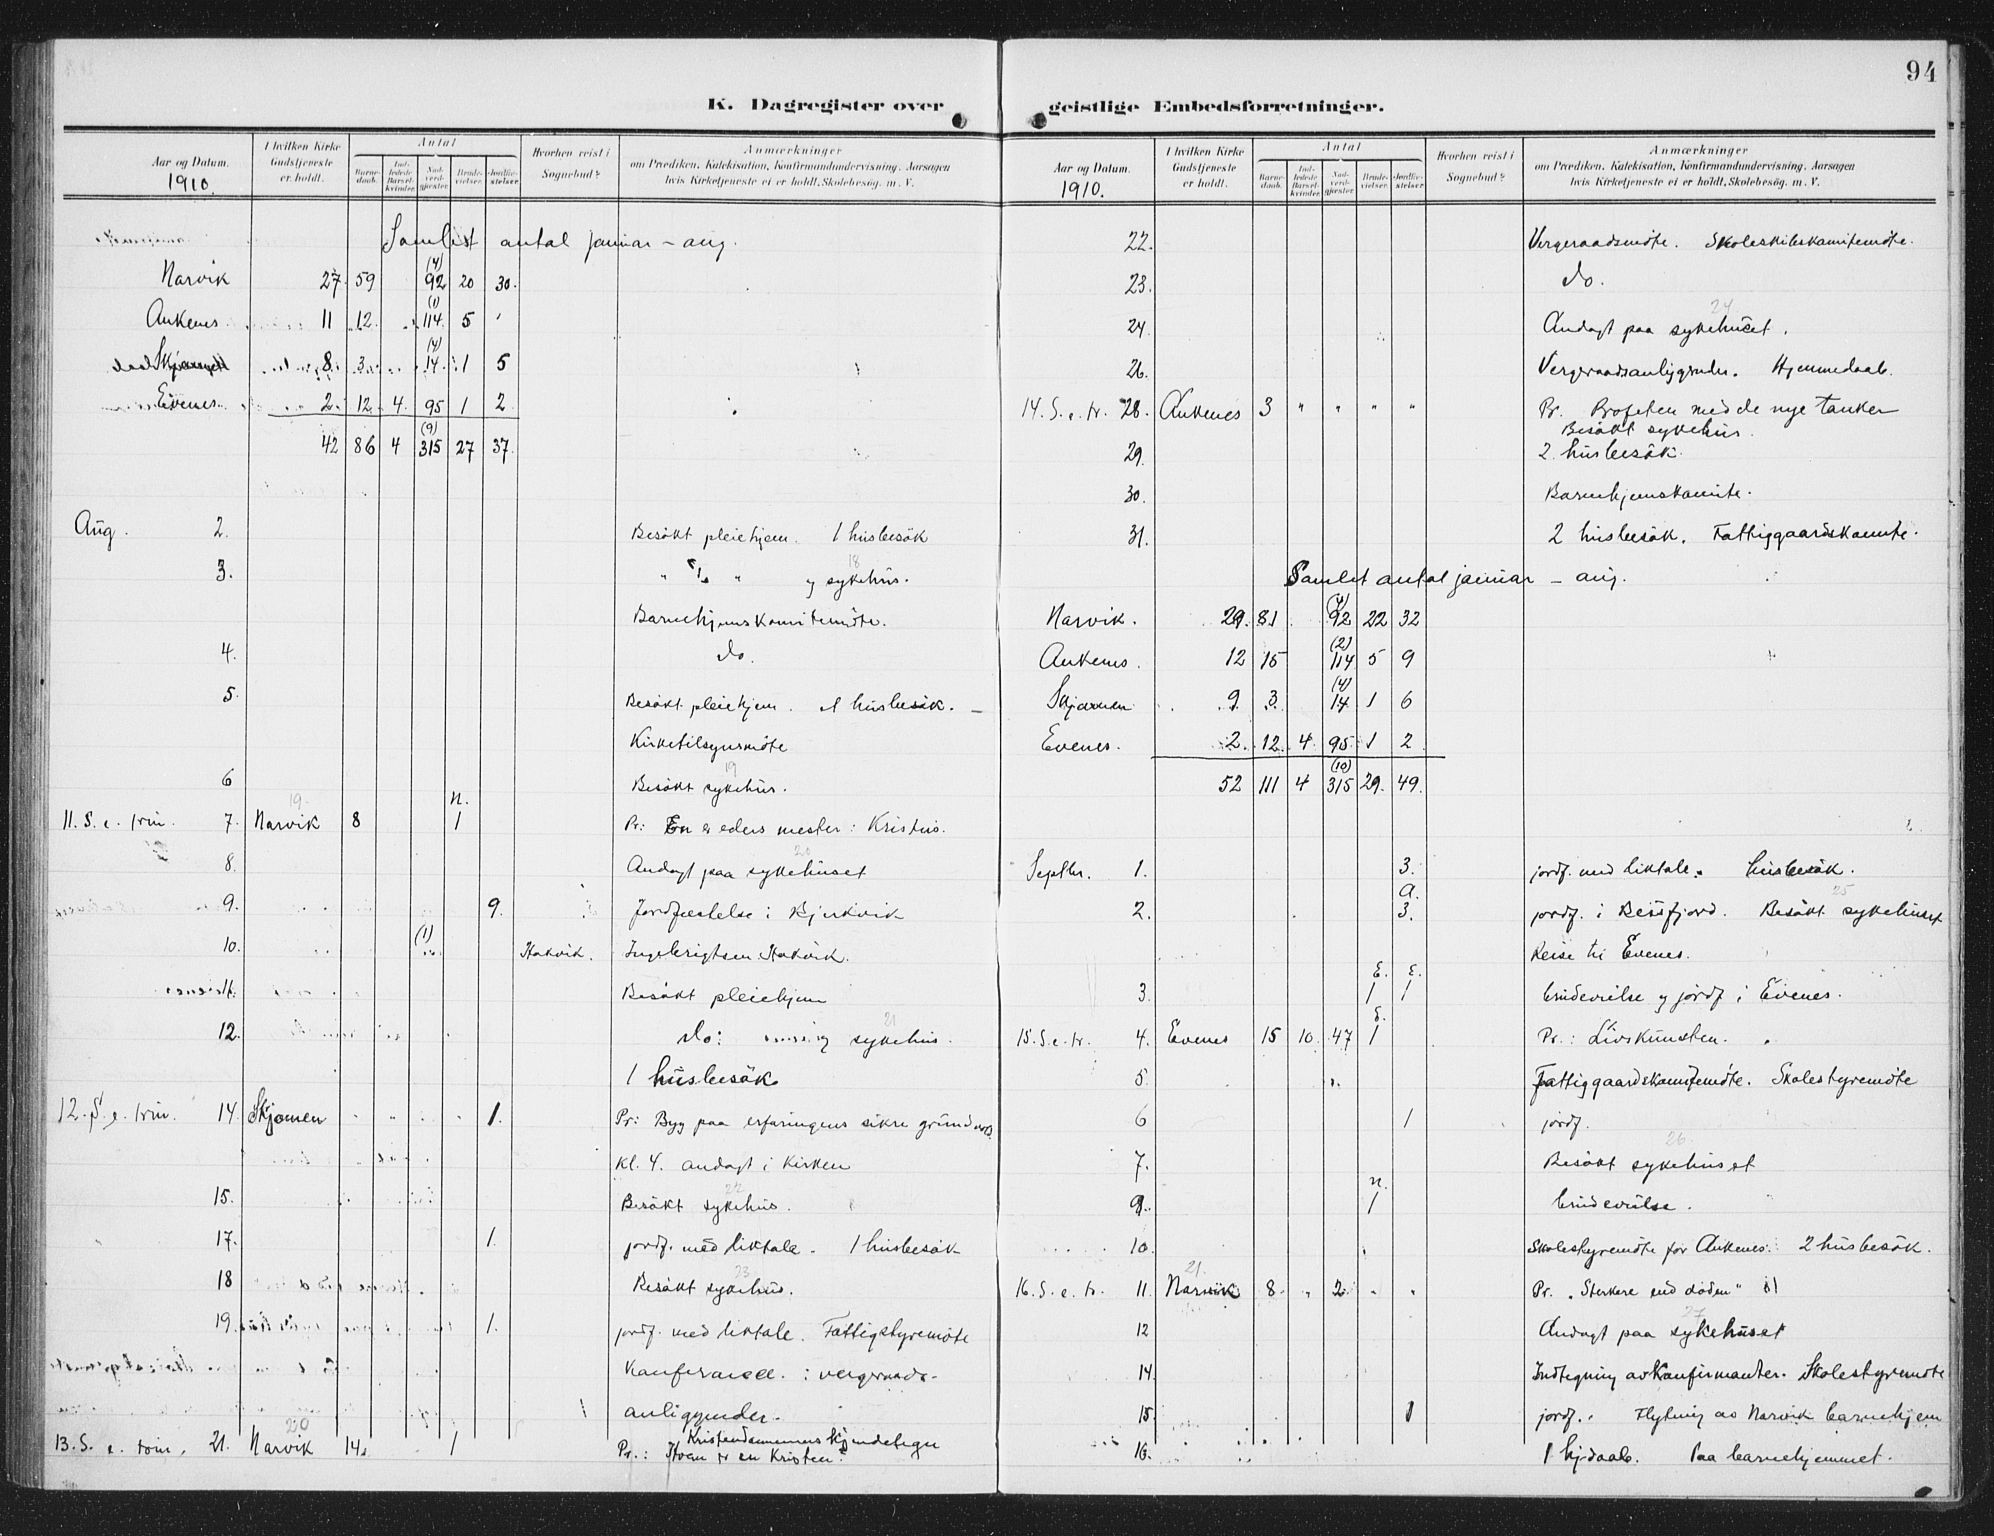 94
K. Dagregister over
geistlige Embedsforretninger.
Aar og Datum.
1910.
I hvilken Kirke Gudstjeneste er holdt.
Antal
Barne-daab.
Ind-ledede Barsel-kvinder.
Nad-verd-gjester.
Brude-vielser.
Jordfæ-stelser.
Hvorhen reist i Sognebud?
Anmærkninger
om Prædiken, Katekisation, Konfirmandundervisning. Aarsagen
hvis Kirketjeneste ei er holdt, Skolebesøg. m. V.
Samlet antal januar – aug.
Narvik 27. 59 (4) 92 20 30.
Ankenes 11 12. (1) 114 5
8. 3 (4) 14. 1 5
Evenes 2. 12 4. 95 1 2
42 86 4 (9) 315 27 37.
Aug. 2. Besøkt pleiehjem. 1 husbesøk
3. " " og sykehus. 18
Barnehjemskomitemøte.
4. do.
5. Besøkt pleiehjem. 1 husbesøk. –
Kirketilsynsmøte
6 Besøkt sykehus. 19
11. S. e. trin. 7. Narvik 19. 8 n. 1 Pr: En er eders mester: Kristus.
8. Andagt paa sykehuset 20
9. 9. Jordfæstelse i Bjerkvik
10. (1) Hakvik. Ingebrigtsen Hakvik.
11. Besøkt pleiehjem
12. do: og sykehus. 21
1 husbesøk
12. S. e. trin. 14. Skjomen " 1. Pr: Byg paa erfaringens sikre grundvold.
Kl. 4. andagt i Kirken
15. Besøkt sykehus. 22
17. 1. jordf. med liktale. 1 husbesøk
18 Besøkt sykehus. 23
19. 1. jordf. med liktale. Fattigstyremøte
Konferanse i vergeraads-
anliggender.
13. S. e. trin. 21. Narvik 20 14. 1 Kristendommens kjendetegn
Pr.: Hvem er en Kristen?
Aar og Datum.
1910.
I hvilken Kirke Gudstjeneste er holdt.
Antal
Barne-daab.
Ind-ledede Barsel-kvinder.
Nad-verd-gjester.
Brude-vielser.
Jordfæ-stelser.
Hvorhen reist i Sognebud?
Anmærkninger
om Prædiken, Katekisation, Konfirmandundervisning. Aarsagen
hvis Kirketjeneste ei er holdt, Skolebesøg. m. V.
22. Vergeraadsmøte.
23. do.
24. Andagt paa sykehuset. 24
26. Vergeraadsanliggender. Hjemmedaab.
14. S. e. tr. 28. Ankenes 3 " " " " Pr. Profeten med de nye tanker
Besøkt sykehus.
29. 2 husbesøk.
30. Barnehjemskomite.
31. 2 husbesøk. Fattiggaardskomite.
Samlet antal januar – aug.
Narvik. 29. 81 (4) 92 22 32
Ankenes. 12 15 (2) 114 5 9
Skjomen 9. 3. (4) 14 1 6
Evenes. 2. 12. 4. 95. 1 2
52 111 4 (10) 315 29. 49.
Septbr. 1. 3. jordf. med liktale. husbesøk.
2. a. 3. jordf. i Beisfjord. Besøkt sykehuset 25
Reise til Evenes.
3. E. 1 E. 1 brudevielse og jordf. i Evenes.
15. S. e. tr. 4. Evenes 15 10. 47 E. 1 Pr.: Livskunsten.
5. Fattiggaardskomitemøte. Skolestyremøte
6 1 jordf.
7. Besøkt sykehuset 26.
9. n. 1 brudevielse.
10. Skolestyremøte for Ankenes. 2 husbesøk.
16. S. e. tr. 11. Narvik 21. 8. " 2. " " Pr. „Sterkere end døden"
12 Andagt paa sykehuset 27
14. Indtegning av Konfirmanter. Skolestyremøte
15. 1 jordf. Flytning av Narvik barnehjem
16. 1 hj.daab. Paa barnehjemmet.